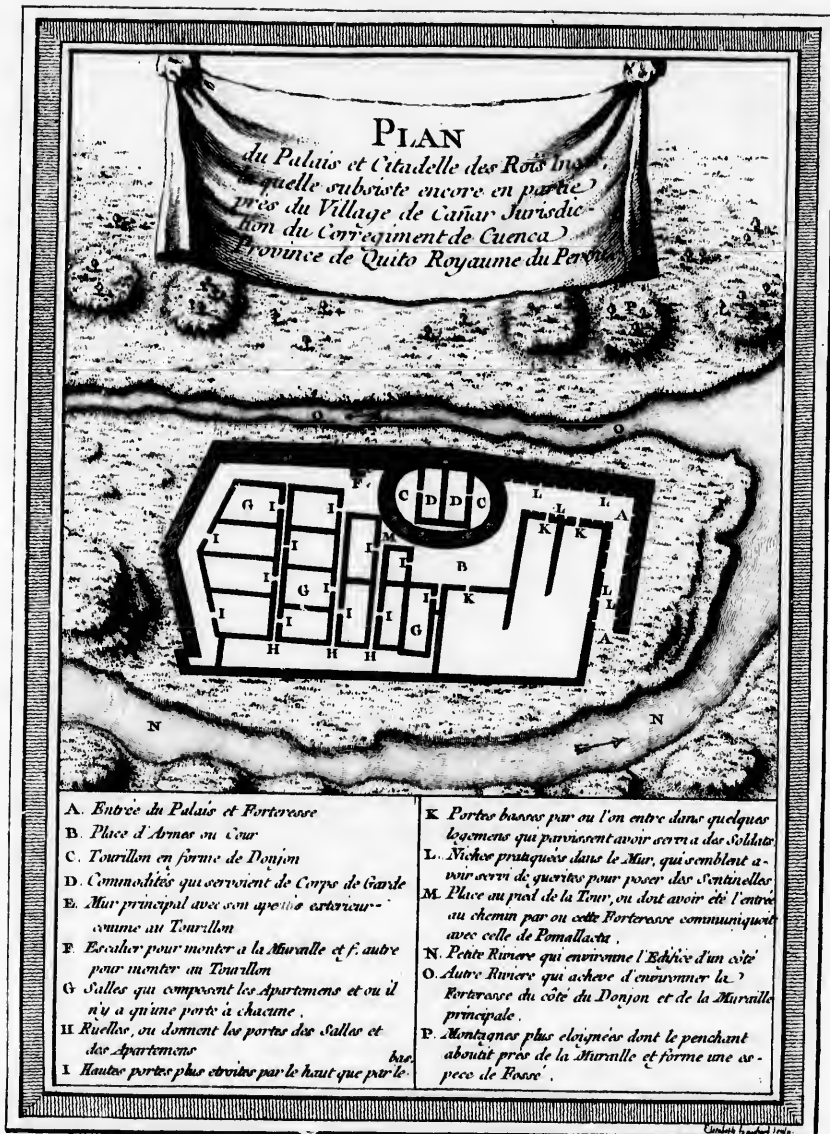 PLAN
du Palais et Citadelle des Rois
quelle subsiste encore en partie
près du Village de Cañar Jurisdic-
tion du Corregiment de Cuenca
Province de Quito Royaume du
P
O
O
F
C D D C
L L L A
G I I I
K K
M
I I
B
I I I
G
K
L
L
I I I I I
G
A
H H H
N
N
A. Entrée du Palais et Forteresse
B. Place d'Armes ou Cour
C. Tourillon en forme de Donjon
D. Commodités qui servoient de Corps de Garde
E. Mur principal avec son exterieur
comme au Tourillon
F. Escalier pour monter a la Muraille et f. autre
pour monter au Tourillon
G Salles qui composent les Apartemens et ou il
n'y a qu'une porte à chacune.
H Ruelles, ou donnent les portes des Salles et
des Apartemens
I Hautes portes plus etroites par le haut que par le bas.
K Portes basses par ou l'on entre dans quelques
logemens qui paroissent avoir servi a des Soldats.
L. Niches pratiquées dans le Mur, qui semblent a-
voir servi de guerites pour poser des Sentinelles
M Place au pied de la Tour, ou doit avoir été l'entrée
au chemin par ou cette Forteresse communiquoit
avec celle de Pomallacta.
N. Petite Riviere qui environne l'Edifice d'un côté
O. Autre Riviere qui acheve d'environner la
Forteresse du côté du Donjon et de la Muraille
principale.
P. Montagnes plus eloignées dont le penchant
aboutit près de la Muraille et forme une es-
pece de Fossé.
Elizabeth